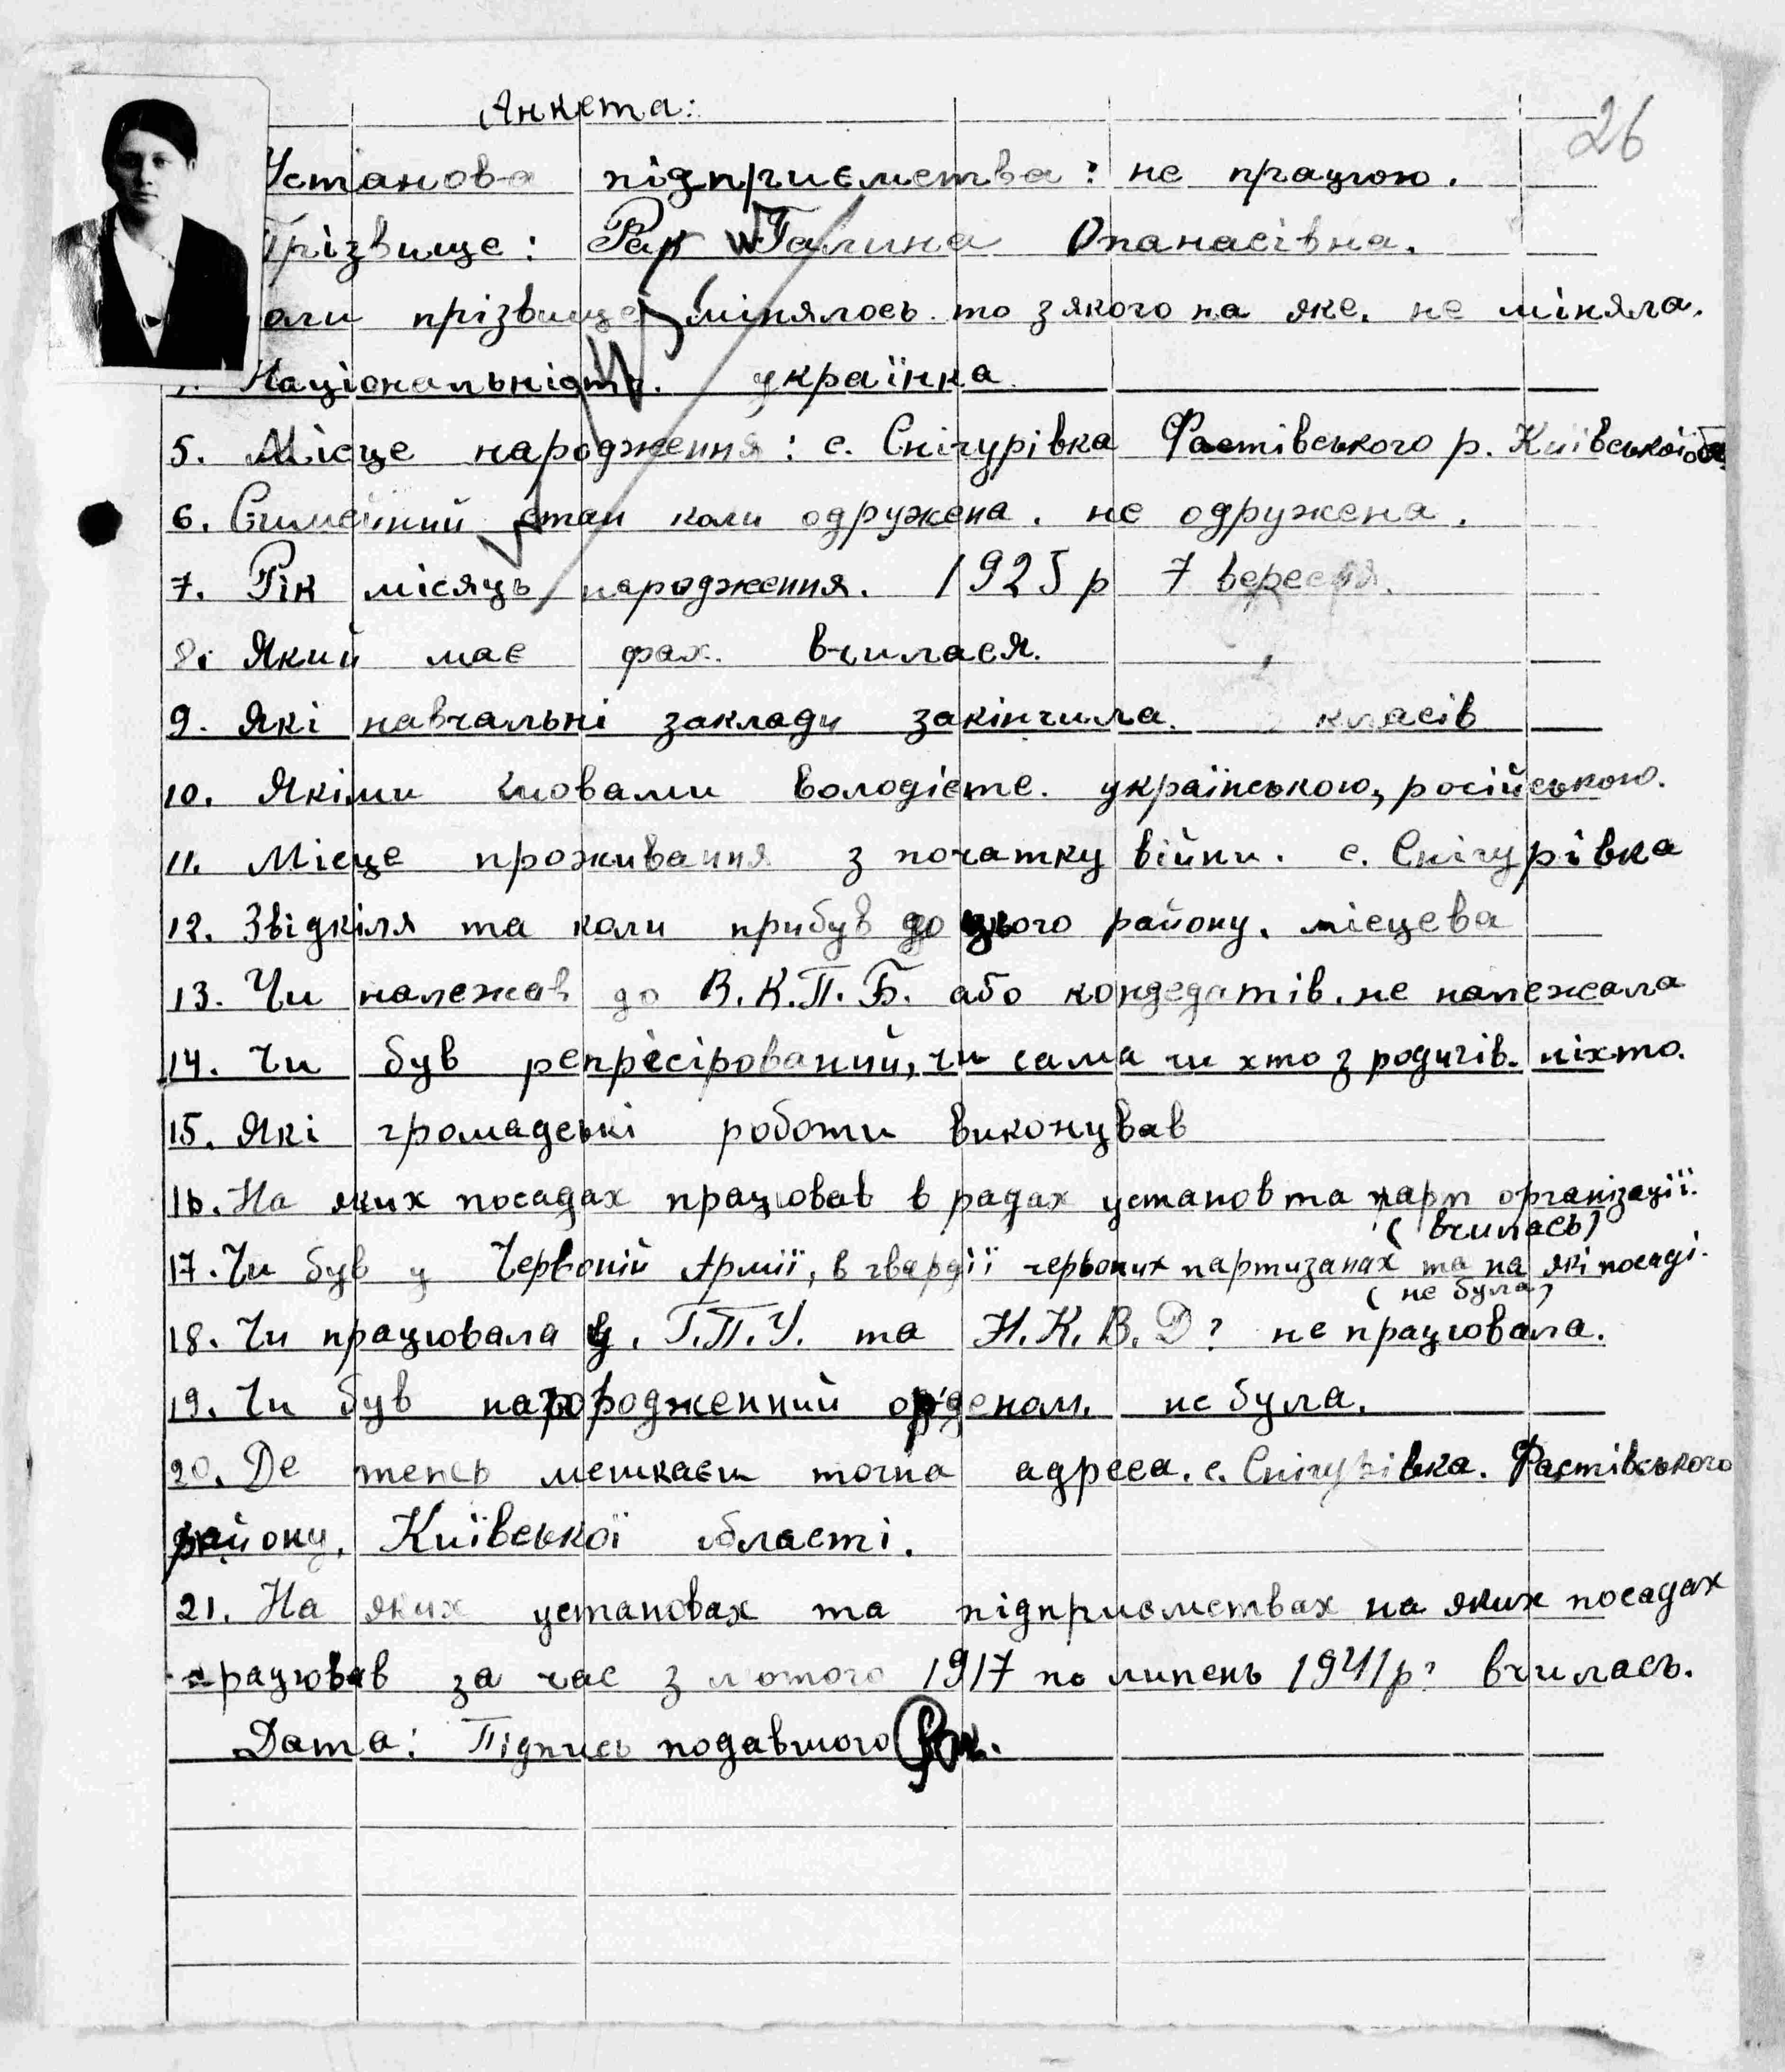 26
Анкета:
Установа підприємства: не працюю.
Прізвище: Рак Галина Опанасівна.
оли прізвище мінялось то з якого на яке. не міняла.
Національність. українка.
5. Місце народження: с. Снігурівка Фастівського р. Київської об
6. Симейний стан коли одружена. не одружена.
7. Рік місяць народження. 1925 р 7 вересня.
8. Який має фах. вчилася.
9. Які навчальні заклади закінчила. класів
10. Якіми мовами володієте. українською, російською.
11. Місце проживання з початку війни. с. Снігурівка
12. Звідкіля та коли прибув до цього району. місцева
13. Чи належав до В.К.П.Б. або кондедатів. не належала
14. Чи був репресірований, чи сама чи хто з родичів. ніхто.
15. Які громадські роботи виконував
16. На яких посадах працював в радах установ та парт організації.
(вчилась)
17. Чи був у Червоній Армії, в гвардії червоних партизанах та на які посаді.
(не була)
18. Чи працювала у. Г.П.У. та Н.К.В.Д? не працювала.
19. Чи був нагородженний орденом. не була.
20. Де тепер мешкаєш точна адреса. с. Снігурівка. Фастівського
району. Київської області.
21. На яких установах та підприємствах на яких посадах
працював за час з лютого 1917 по липень 1941 р? вчилась.
Дата: Підпись подавшого Рак.